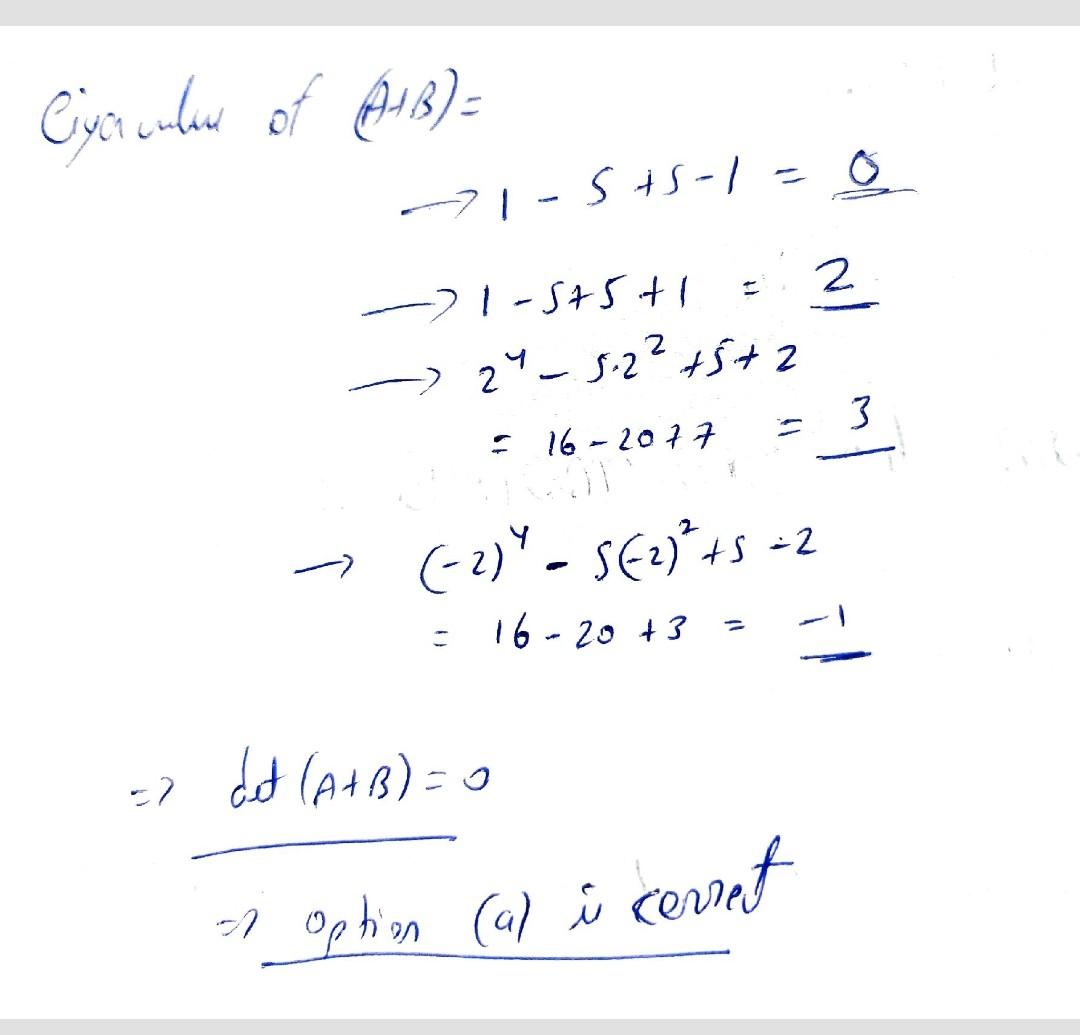 Eigenvalues of (A+B)=
→ 1 - 5 + 5 - 1 = 0
→ 1 - 5 + 5 + 1 = 2
→ 2⁴ - 5·2² + 5 + 2
= 16 - 20 + 7 = 3
→ (-2)⁴ - 5(-2)² + 5 - 2
= 16 - 20 + 3 = -1
=> det (A+B) = 0
=> option (a) is correct